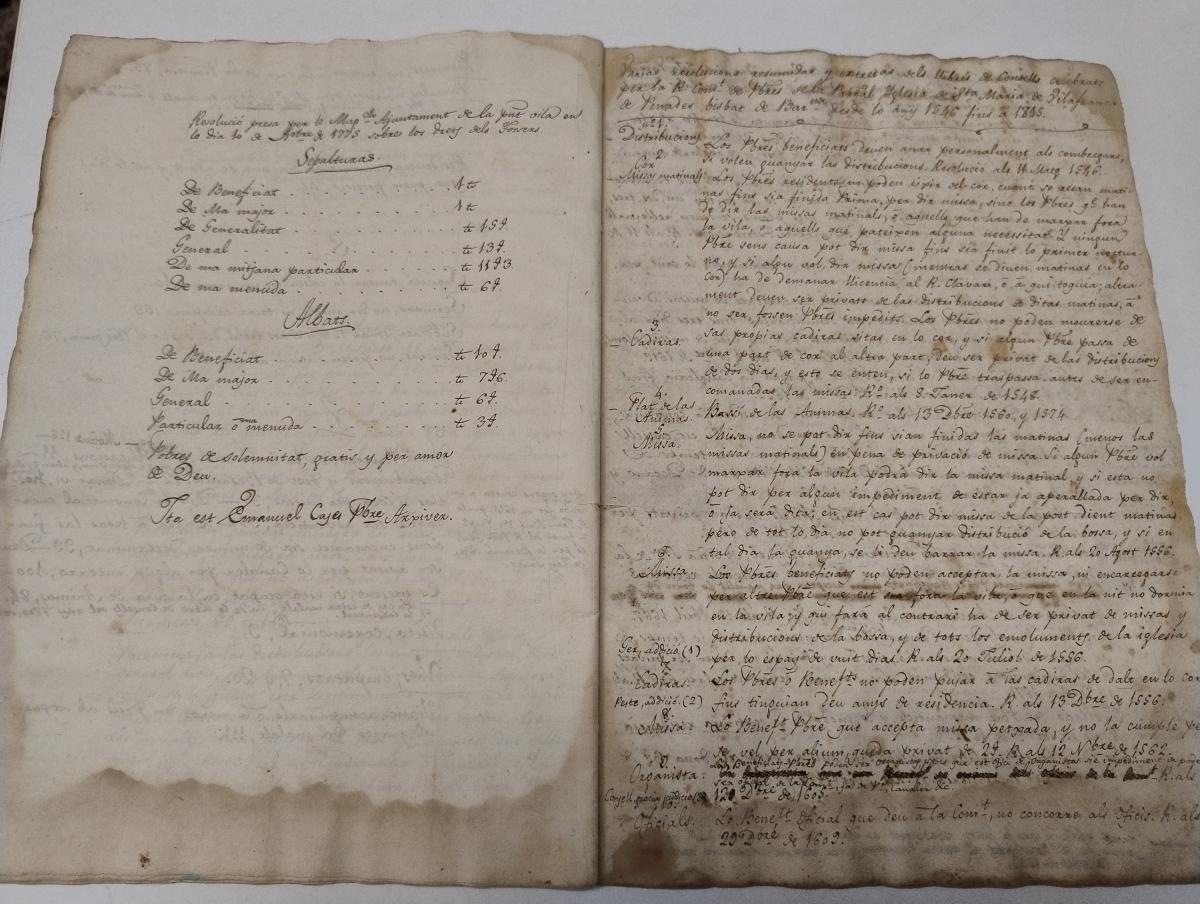 Resolució presa per lo Magch Ajuntament de la pnt vila en
lo dia 10 de de 1775 sobres los drets dels Fossers.
Sepulturas.
De Beneficiat . . . . . . . . . . 1 ₶
De Ma major . . . . . . . . . . 1 ₶
De Generalitat . . . . . . . . . . ₶ 15 ſ.
General . . . . . . . . . . ₶ 13 ſ.
De ma mitjana particular . . . . . . ₶ 11 ſ 3.
De ma menuda . . . . . . . . . . ₶ 6 ſ.
Albats.
De Beneficiat . . . . . . . . . . ₶ 10 ſ.
De Ma major . . . . . . . . . . ₶ 7 ſ 6.
General . . . . . . . . . . ₶ 6 ſ.
Particular o ma menuda . . . . . . ₶ 3 ſ.
Pobres de solemnitat, gratis y per amor
de Deu.
Ita est Emanuel Cases Pbre Arxiver.
Varias resolucions resumidas y extretas dels llibres de Consells celebrats
per la Rt Comt de Pbres de la Parral Iglesia de Sta Maria de Vilafranca
de Penades bisbat de Barna desde lo any 1546 fins a 1815.
nº 1.
Distribucions
Los Pbres beneficiats deuen anar personalment als combregars,
si volen guanyar las distribucions. Resolució als 11 Maig 1546.
Cor 2.
Missas matinals
Los Pbres residents no poden eixir del cor, cuant se resan mati-
nas fins sia finida Prima, per dir missa, sino los Pbres qe han
de dir las missas matinals, o aquells que han de marxar fora
la vila, o aquells que pateixen alguna necessitat. Y ningun
Pbre sens causa pot dir missa fins sia finit lo primer noctur-
no, y si algu vol dir missa (mentras se diuen matinas en lo
cor) ha de demanar llicencia al R. Clavari, ó a qui toquia; altra-
ment deuen ser privats de las distribucions de ditas matinas, á
no ser, fossen Pbres impedits. Los Pbres no poden mourerse de
3.
Cadiras.
sas propias cadiras sitas en lo cor, y si algun Pbre passa de
una part de cor al altra part, deu ser privat de las distribucions
de dos dias, y esto se enten, si lo Pbre traspassa antes de ser en-
comanadas las missas. Ro als 8 Janer de 1548.
4.
Plat de las
Animas.
Bassi de las Animas. Ro als 13 Dbre 1560, y 1574.
5.
Missa.
Missa, no se pot dir fins sian finidas las matinas (menos las
missas matinals) en pena de privació de missa. Si algun Pbre vol
marxar fora la vila podrá dir la missa matinal, y si esta no
pot dir per algun impediment de estar ja aperallada per dir,
o ja será dita; en est cas pot dir missa de la post dient matinas
pero de tot lo dia no pot guanyar distribució de la bossa, y si en
tal dia la guanya, se li deu barrar la missa. R. als 20 Agost 1556.
6.
Missa.
Los Pbres beneficiats no poden acceptar la missa, ni encarregarse
per altre Pbre que est sia fora la vila, o que en la nit no dormia
en la vila; y qui fará al contrari ha de ser privat de missas y
distribucions de la bossa, y de tots los emoluments de la iglesia
per lo espay de vuit dias. R. als 20 Juliol de 1556.
Ger, addició. (1)
7.
Cadiras.
Los Pbres o Benefts no poden pujar á las cadiras de dalt en lo cor
fins tinguian deu anys de residencia. R. als 13 Dbre de 1556.
Peste, addició. (2)
8.
Missa.
Lo Beneft Pbre que accepta missa petxada, y no la cumple per
se, vel per alium, queda privat de 2 ſ. R. als 12 Nbre de 1562.
9.
Organista:
Los Beneficiats y Pbres poden ser organistas sens que est ofici de organista sie impediment a poder
ser oficial de la comt, ja de Clavari &c. R. als
12 Dbre de 1603.
addició (3)
Oficials.
Lo Beneft Oficial que deu á la Comt, no concorre als Oficis. R. als
29 Dbre de 1603.